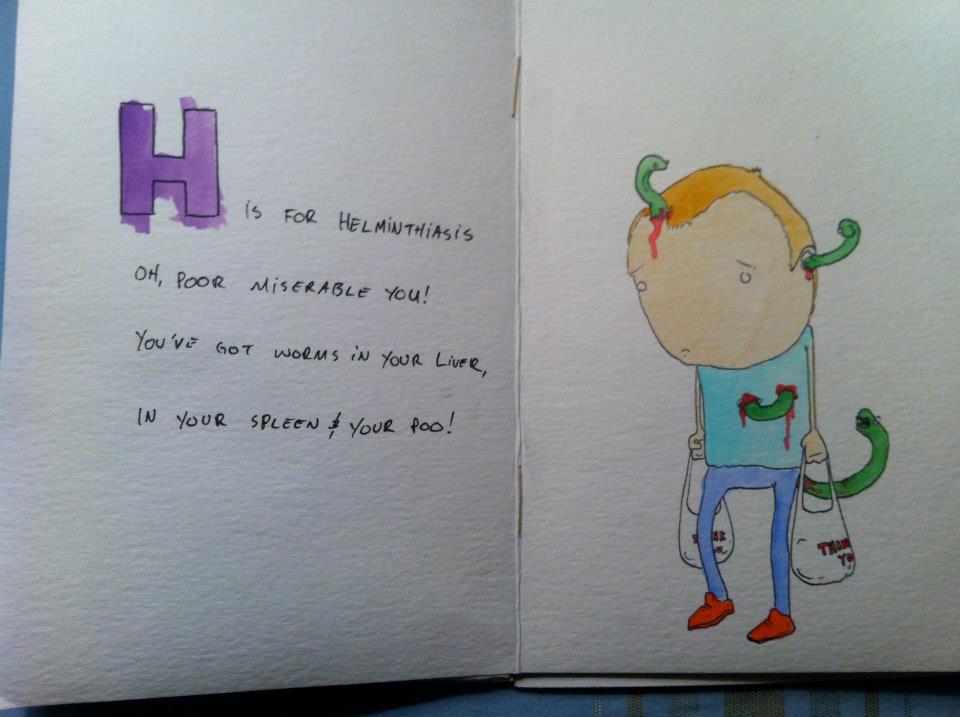 H IS FOR HELMINTHIASIS
OH, POOR MISERABLE YOU!
YOU'VE GOT WORMS IN YOUR LIVER,
IN YOUR SPLEEN & YOUR POO!
THAN
YO